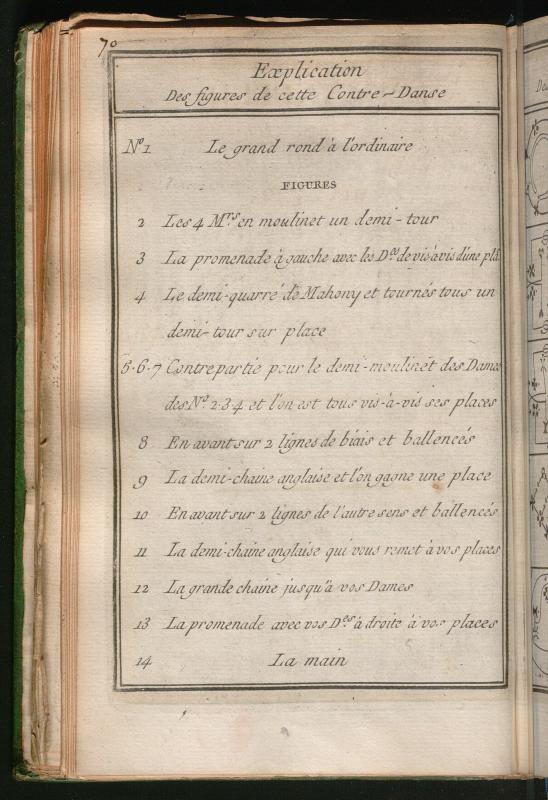 70
Explication
Des figures de cette Contre-Danse
Nº1 Le grand rond à l'ordinaire
FIGURES
2 Les 4 Mrs. en moulinet un demi-tour
3 La promenade à gauche avec les Des de vis à vis d'une pla
4 Le demi-quarré de Mahony et tournés tous un
demi-tour sur place
5·6·7 Contrepartie pour le demi-moulinet des Dames
des Nº 2·3·4 et l'on est tous vis-à-vis ses places
8 En avant sur 2 lignes de biais et ballencés
9 La demi-chaine anglaise et l'on gagne une place
10 En avant sur 2 lignes de l'autre sens et ballencés
11 La demi-chaine anglaise qui vous remet à vos places
12 La grande chaine jusqu'à vos Dames
13 La promenade avec vos Des. à droite à vos places
14 La main